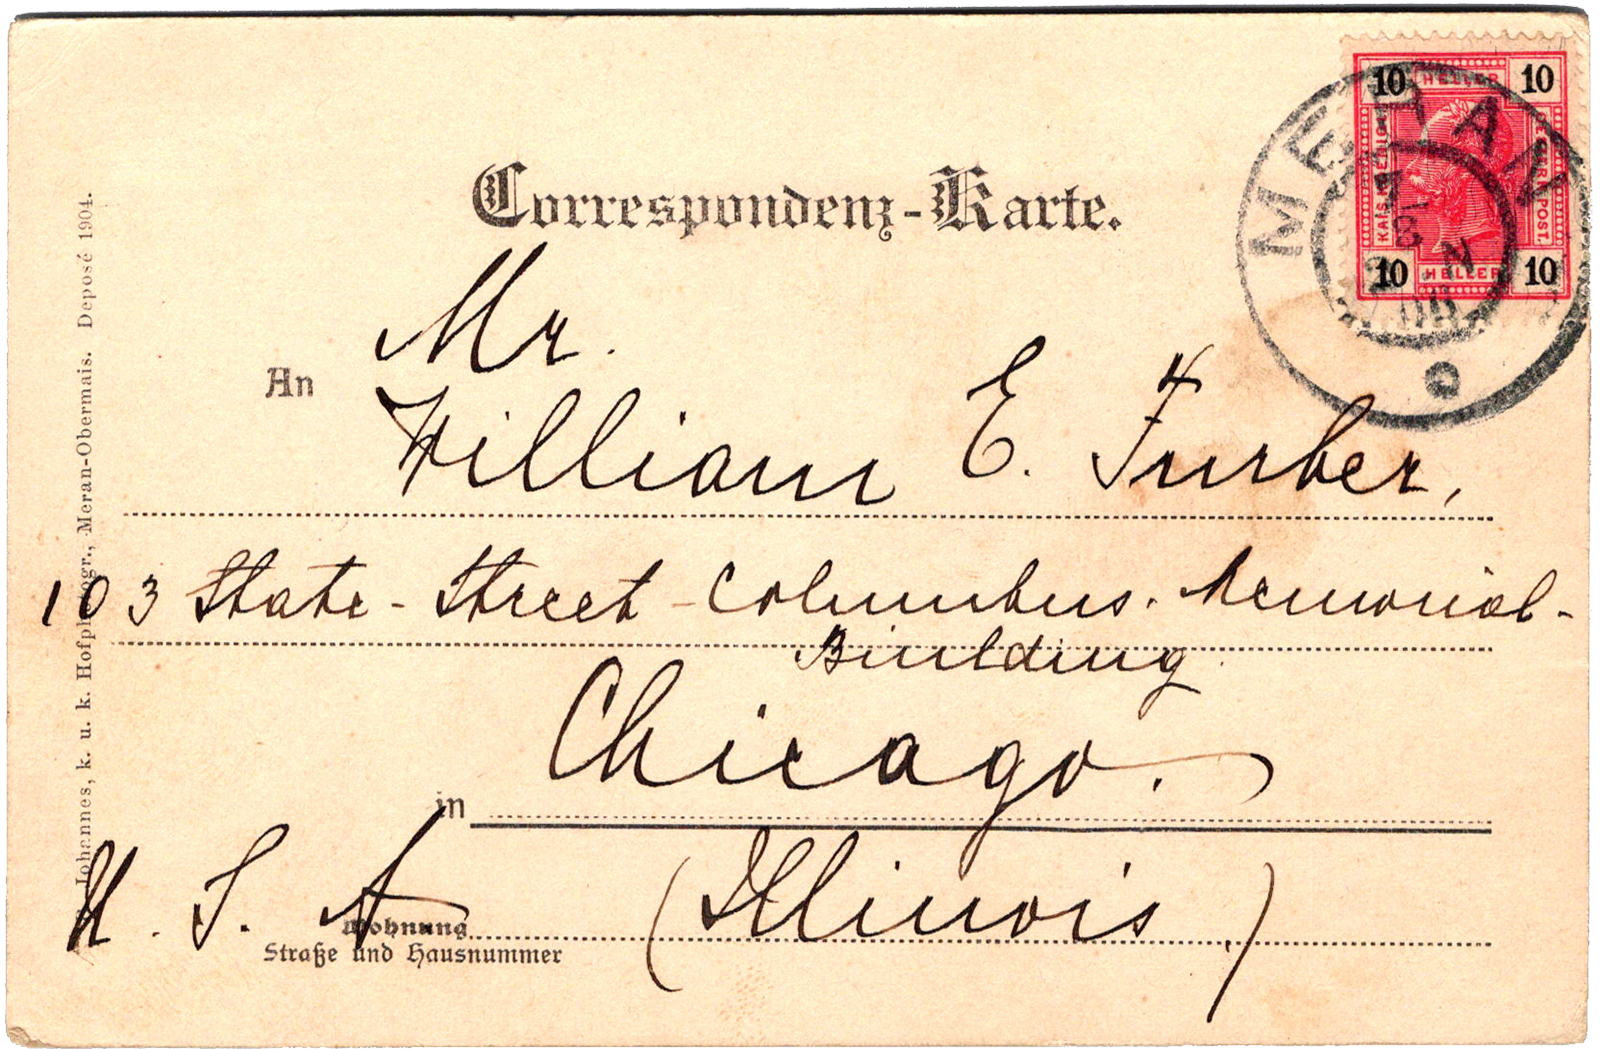 Correspondenz-Karte.
10 HELLER 10
KAIS. KÖNIGL.
OESTERR. POST.
10 HELLER 10
MERAN
Mr.
An
William E. Furber,
103 State-Street-Columbus. Memorial-
Building.
Chicago.
in
U. S. A (Illinois)
Wohnung
Straße und Hausnummer
Johannes, k. u. k. Hofphotogr., Meran-Obermais. Deposé 1904.